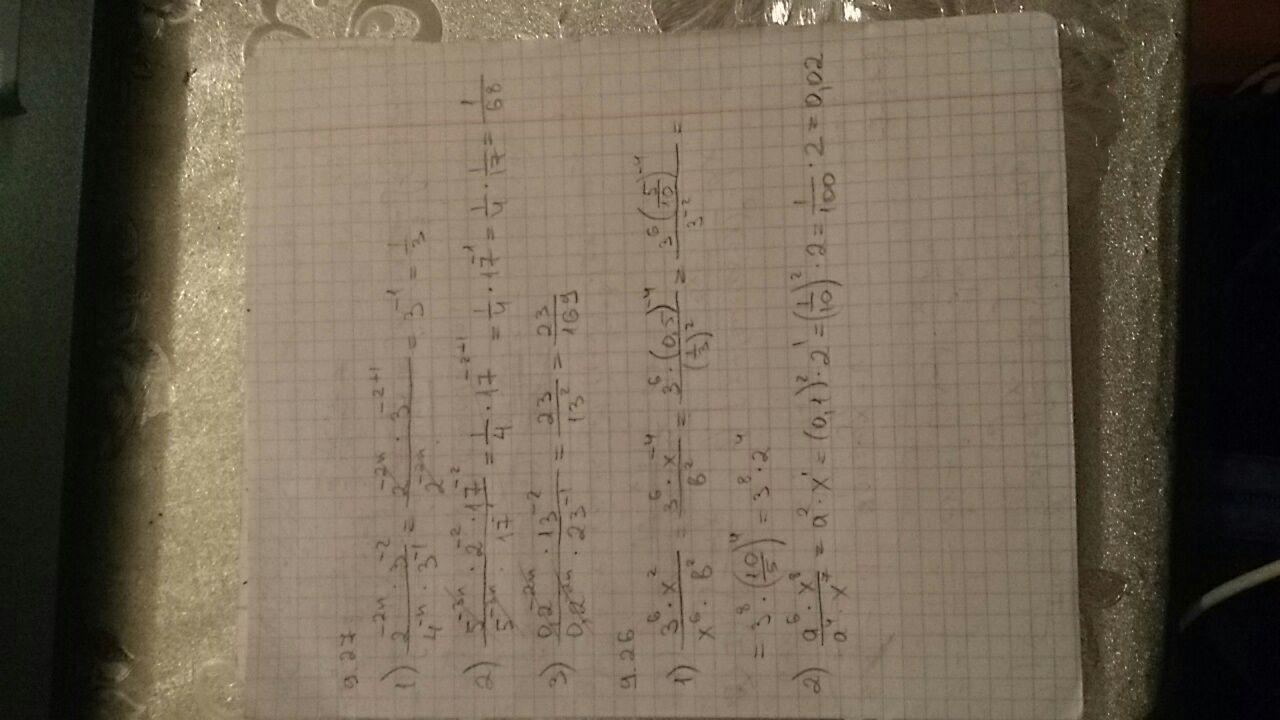 9.27
1) (2^{-2n} · 3^{-2})/(4^{-n} · 3^{-1}) = (2^{-2n} · 3^{-2+1})/(2^{-2n}) = 3^{-1} = 1/3
2) (5^{-3n} · 2^{-2} · 17^{-2})/(5^{-3n} · 17^{-1}) = 1/4 · 17^{-2+1} = 1/4 · 17^{-1} = 1/4 · 1/17 = 1/68
3) (0,2^{-2n} · 13^{-2})/(0,2^{-2n} · 23^{-1}) = 23/13^{2} = 23/169
9.26
1) (3^{6} · x^{2})/(x^{6} · в^{2}) = (3^{6} · x^{-4})/в^{2} = (3^{6} · (0,5)^{-4})/(1/3)^{2} = (3^{6} (5/10)^{-4})/3^{-2} =
= 3^{8} · (10/5)^{4} = 3^{8} · 2^{4}
2) (a^{6} · x^{8})/(a^{4} · x^{7}) = a^{2} · x^{1} = (0,1)^{2} · 2^{1} = (1/10)^{2} · 2 = 1/100 · 2 = 0,02